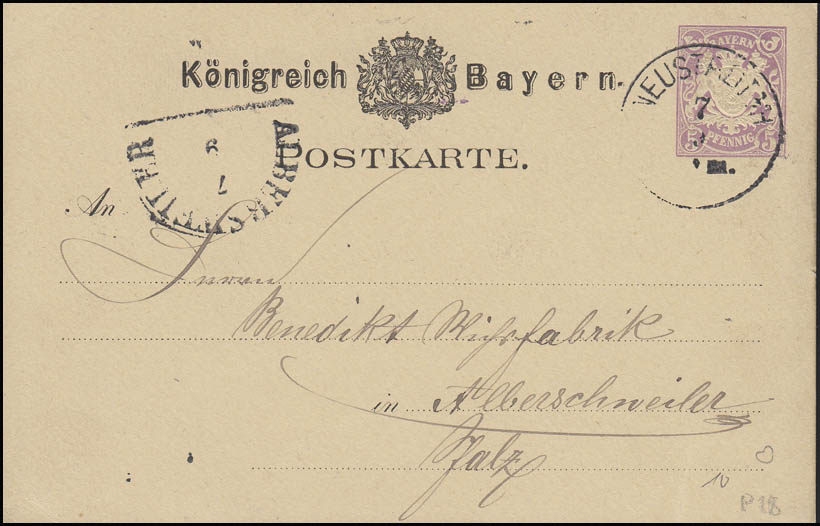 BAYERN
Königreich Bayern.
PFENNIG
5 5
NEUSTADT
7
ALBERSWEILER
7
9
POSTKARTE.
An
Herrn
Benedikt Wichsfabrik
in Alberschweiler
Pfalz
10
P18